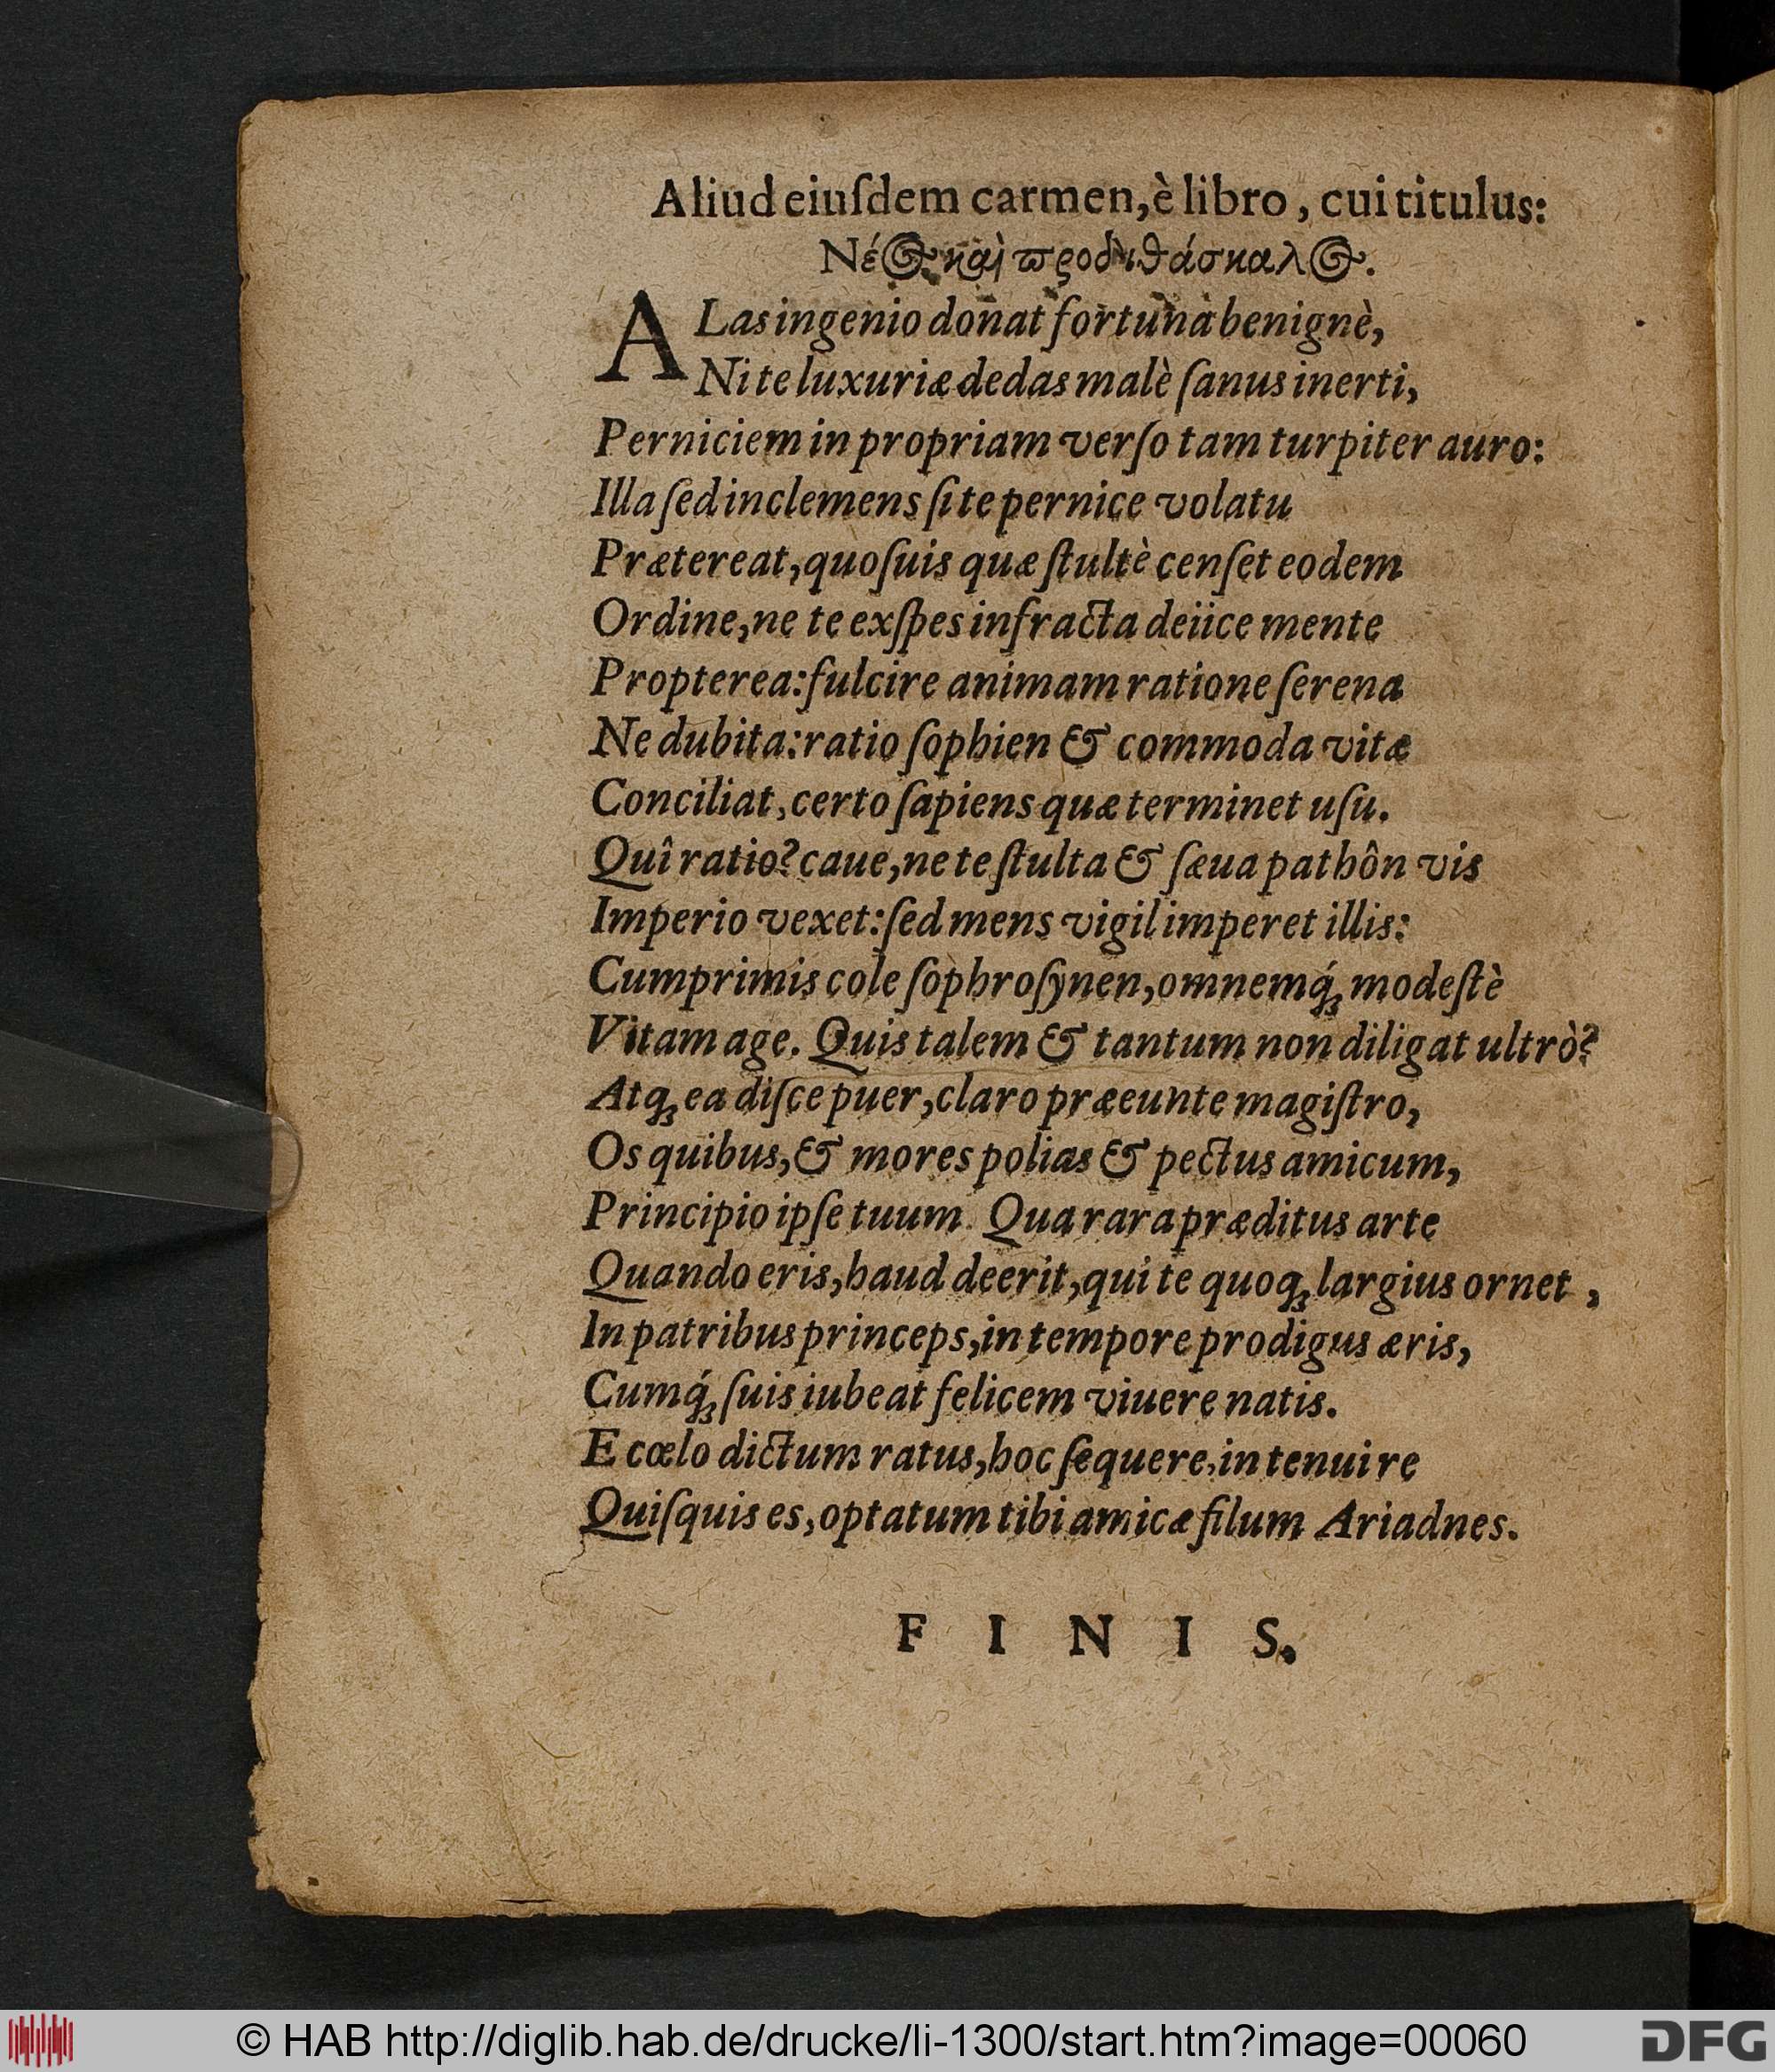 Aliud eiuſdem carmen, è libro, cui titulus:
Νέος καὶ προδιθάσκαλος.
ALas ingenio donat fortuna benignè,
Ni te luxuriæ dedas malè ſanus inerti,
Perniciem in propriam verſo tam turpiter auro:
Illa ſed inclemens ſi te pernice volatu
Prætereat, quo ſuis quæ ſtultè cenſet eodem
Ordine, ne te exſpes infracta deiice mente
Propterea: fulcire animam ratione ſerena
Ne dubita: ratio ſophien & commoda vitæ
Conciliat, certo ſapiens quæ terminet uſu.
Quî ratio? caue, ne te ſtulta & ſæua pathôn vis
Imperio vexet: ſed mens vigil imperet illis:
Cumprimis cole ſophroſynen, omnemq́; modeſtè
Vitam age. Quis talem & tantum non diligat ultrò?
Atq; ea diſce puer, claro præeunte magiſtro,
Os quibus, & mores polias & pectus amicum,
Principio ipſe tuum. Qua rara præditus arte
Quando eris, haud deerit, qui te quoq; largius ornet,
In patribus princeps, in tempore prodigus æris,
Cumq́; ſuis iubeat felicem viuere natis.
E cœlo dictum ratus, hoc ſequere, in tenui re
Quiſquis es, optatum tibi amicæ filum Ariadnes.
F I N I S.
© HAB http://diglib.hab.de/drucke/li-1300/start.htm?image=00060
DFG